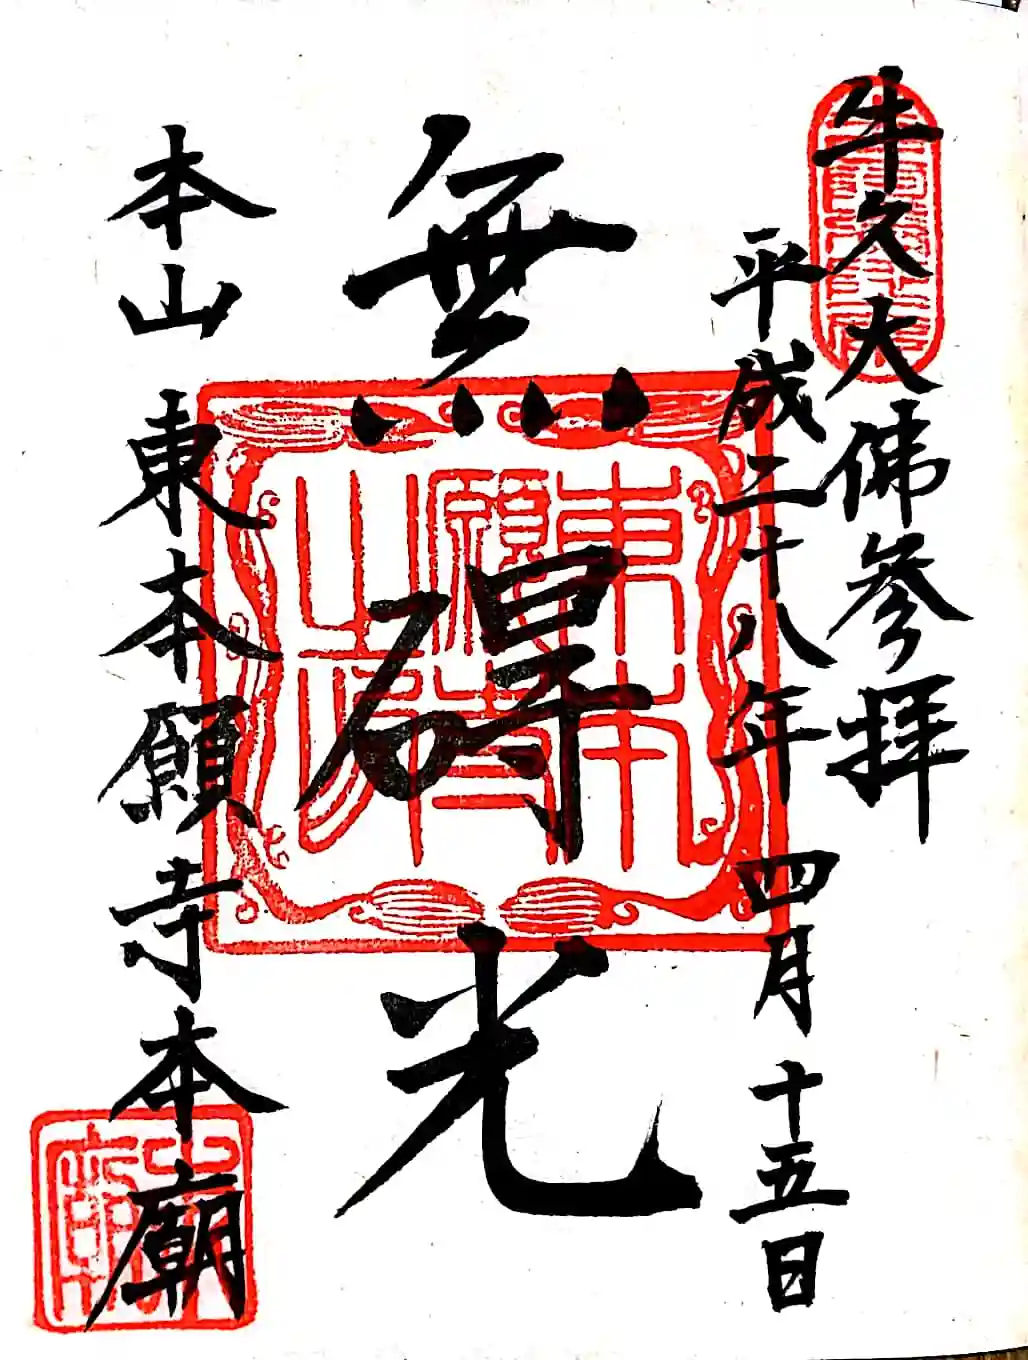 牛久大佛参拝
平成二十八年四月十五日
無碍光
本山東本願寺本廟
東本
願寺
之印